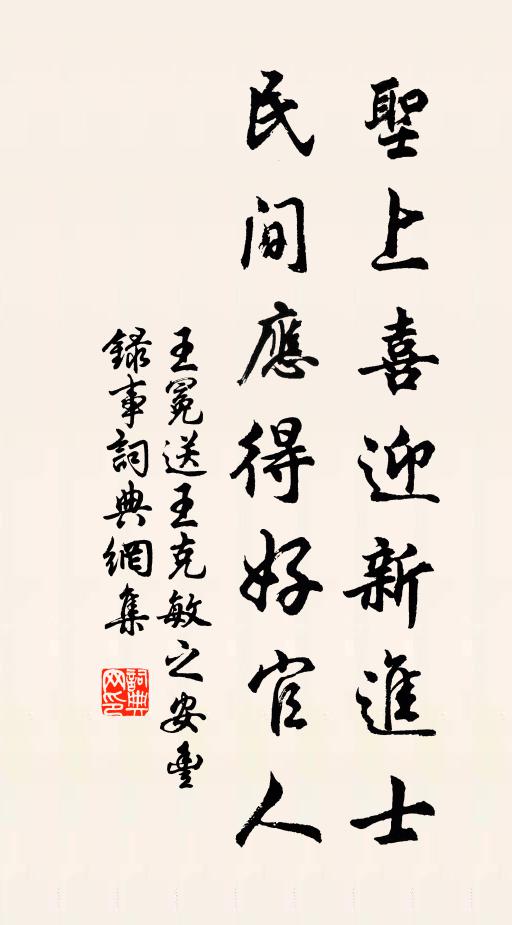 聖上喜迎新進士
民間應得好官人
王冕送王克敏之安豐
錄事詞典網集
詞典网印